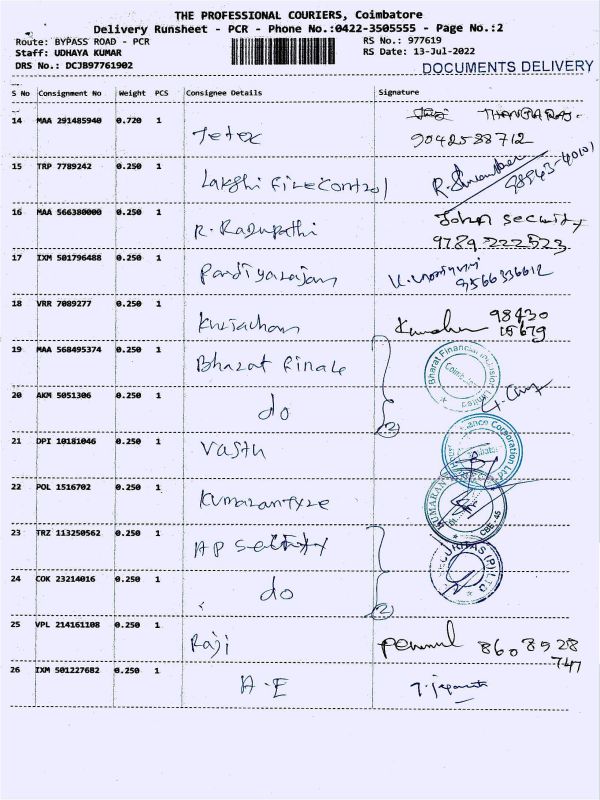 THE PROFESSIONAL COURIERS, Coimbatore
Delivery Runsheet - PCR - Phone No.:0422-3505555 - Page No.:2
Route: BYPASS ROAD - PCR
RS No.: 977619
Staff: UDHAYA KUMAR
RS Date: 13-Jul-2022
DRS No.: DCJB97761902
DOCUMENTS DELIVERY
S No Consignment No Weight PCS Consignee Details Signature
14 MAA 291485940 0.720 1 Tetex
9042588712
15 TRP 7789242 0.250 1 Lakshi fire control
98943-40101
16 MAA 566380000 0.250 1 R. Ragupathi John security
9789 222523
17 IXM 501796488 0.250 1 Pandiyarajan
9566336612
18 VRR 7089277 0.250 1 Kuriachan
98430
15679
19 MAA 568495374 0.250 1 Bharat finale
Bharat Financial Inclusion Limited
20 AKM 5051306 0.250 1 do
(2)
21 DPI 10181046 0.250 1 Vasth
Corporation Ltd
22 POL 1516702 0.250 1 Kumarantyre
KUMARAN
CBE-45
23 TRZ 113250562 0.250 1 AP security
(P) LTD
24 COK 23214016 0.250 1 do
(2)
25 VPL 214161108 0.250 1 Raji Perumal 8608928
747
26 IXM 501227682 0.250 1 A-E